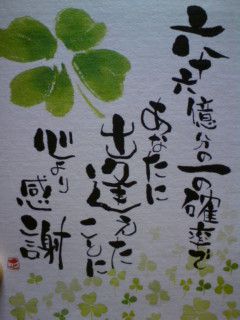 六十六億分の一の確率で
あなたに
出逢えた
ことに
心より
感謝